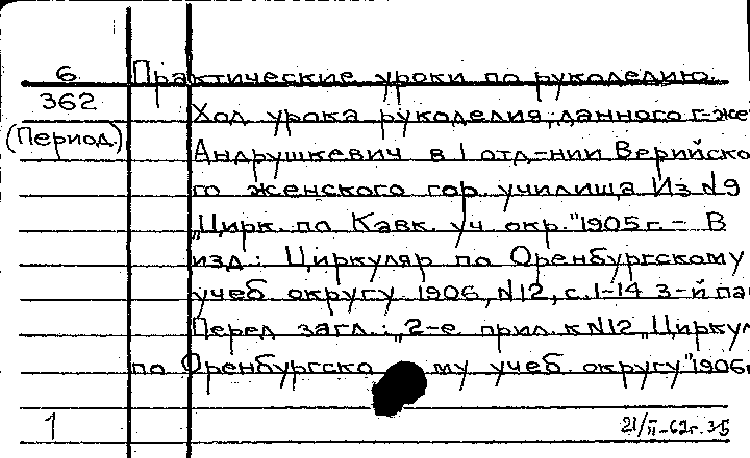 6 Практические уроки по рукоделию.
362 Ход урока рукоделия, данного г-же
(Период) Андрушкевич в I отд-нии Верийско
го женского гор. училища Из N9
„Цирк. по Кавк. уч окр." 1905 г. - В
изд.: Циркуляр по Оренбургскому
учеб. округу. 1906, N12, с. 1-14 3-й па
Перед загл.: „2-е прил. к N12 „Циркул
по Оренбургско му учеб. округу" 1906г
1 21/II-62г. 35